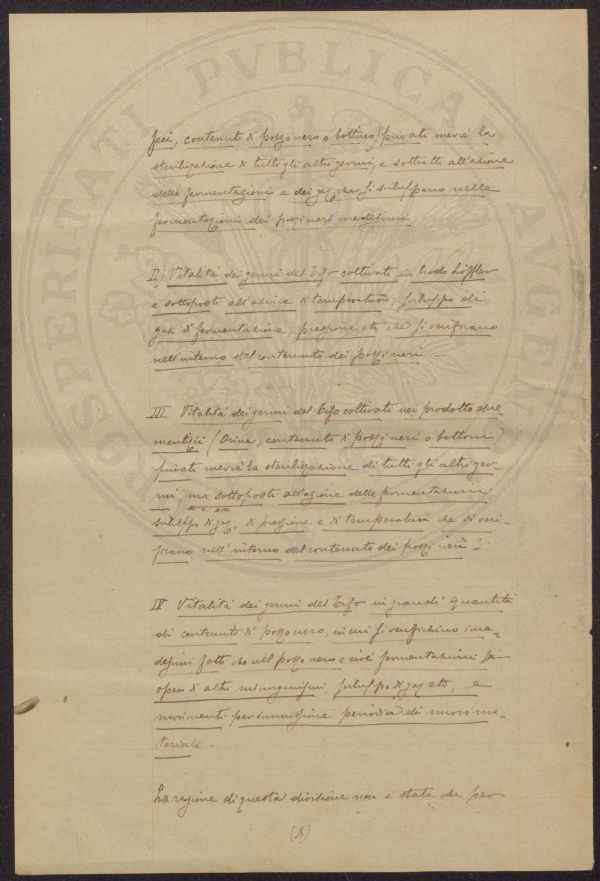 feci, contenuto di pozzo nero o bottino) privati mercè la
sterilizazione di tutti gli altri germi, e sottratti all'azione
delle fermentazioni e dei gaz che si sviluppano nelle
fermentazioni dei pozzi neri medesimi
II) Vitalità dei germi del Tifo coltivati in brodo Löffler
e sottoposti all'azione di temperatura, sviluppo di
gaz di fermentazione, pressione etc che si verificano
nell'interno del contenuto dei pozzi neri -
III Vitalità dei germi del Tifo coltivati nei prodotti escre-
mentizii (Orine, contenuto di pozzi neri o bottini
privati mercè la sterilizazione di tutti gli altri ger-
mi, ma sottoposti all'azione delle fermentazioni
sviluppo di gaz, di pressione e di temperatura che si veri-
ficano nell'interno del contenuto dei pozzi neri -
IV Vitalità dei germi del Tifo in grandi quantità
di contenuto di pozzo nero, in cui si verifichino i me-
desimi fatti che nel pozzo nero e cioè fermentazioni per
opera di altri microrganismi, sviluppo di gaz etc, e
movimenti per immissione periodica di nuovo ma-
teriale.
La ragione di questa divisione non è stata che per
PROSPERITATI PVBLICAE AVGENDAE